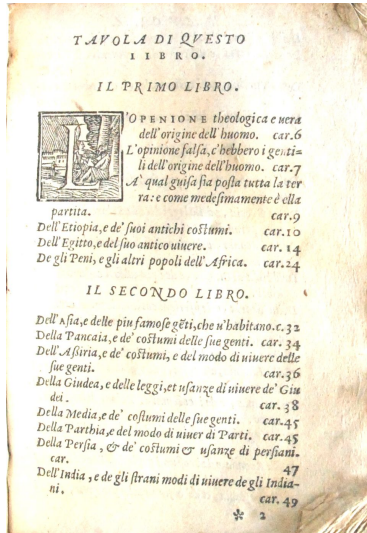 TAVOLA DI QVESTO
LIBRO.
IL PRIMO LIBRO.
L'OPENIONE theologica e uera
dell'origine dell'huomo. car.6
L'opinione falsa, c'hebbero i genti-
li dell'origine dell'huomo. car.7
A' qual guisa sia posta tutta la ter
ra: e come medesimamente è ella
partita. car.9
Dell'Etiopia, e de' suoi antichi costumi. car.10
Dell'Egitto, e del suo antico uiuere. car. 14
De gli Peni, e gli altri popoli dell'Africa. car.24
IL SECONDO LIBRO.
Dell'Asia, e delle piu famose gẽti, che u'habitano. c.32
Della Pancaia, e de' costumi delle sue genti. car. 34
Dell'Assiria, e de' costumi, e del modo di uiuere delle
sue genti. car.36
Della Giudea, e delle leggi, et usanze di uiuere de' Giu
dei. car. 38
Della Media, e de' costumi delle sue genti. car.45
Della Parthia, e del modo di uiuer di Parti. car.45
Della Persia, & de' costumi & usanze di persiani.
car. 47
Dell'India, e de gli strani modi di uiuere de gli India-
ni. car. 49
* 2